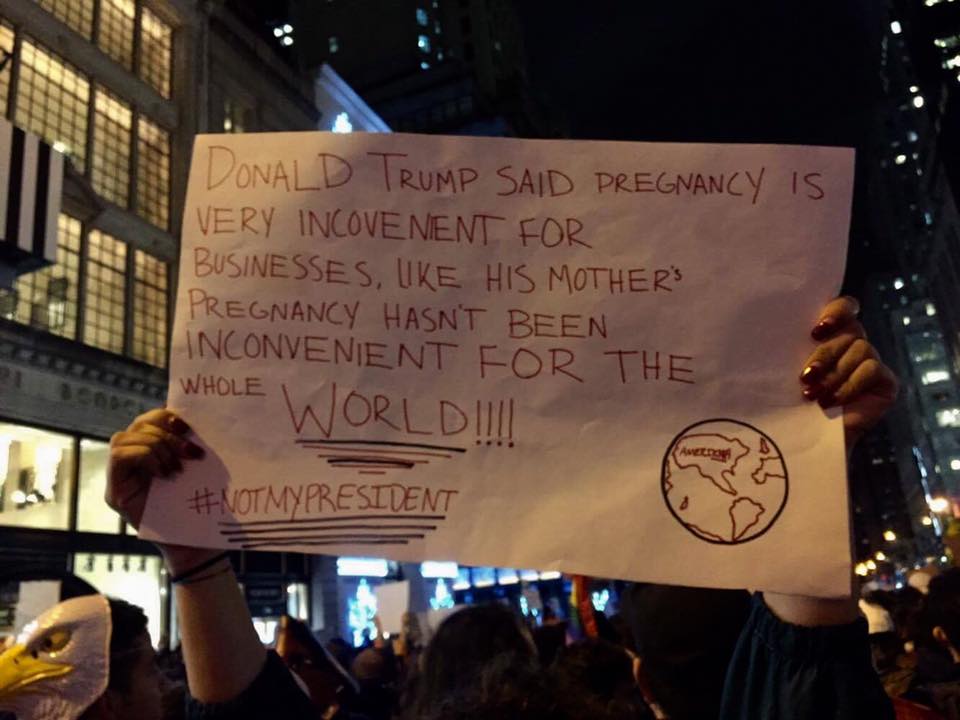 DONALD TRUMP SAID PREGNANCY IS
VERY INCOVENIENT FOR
BUSINESSES, LIKE HIS MOTHER'S
PREGNANCY HASN'T BEEN
INCONVENIENT FOR THE
WHOLE WORLD!!!!
#NOTMYPRESIDENT